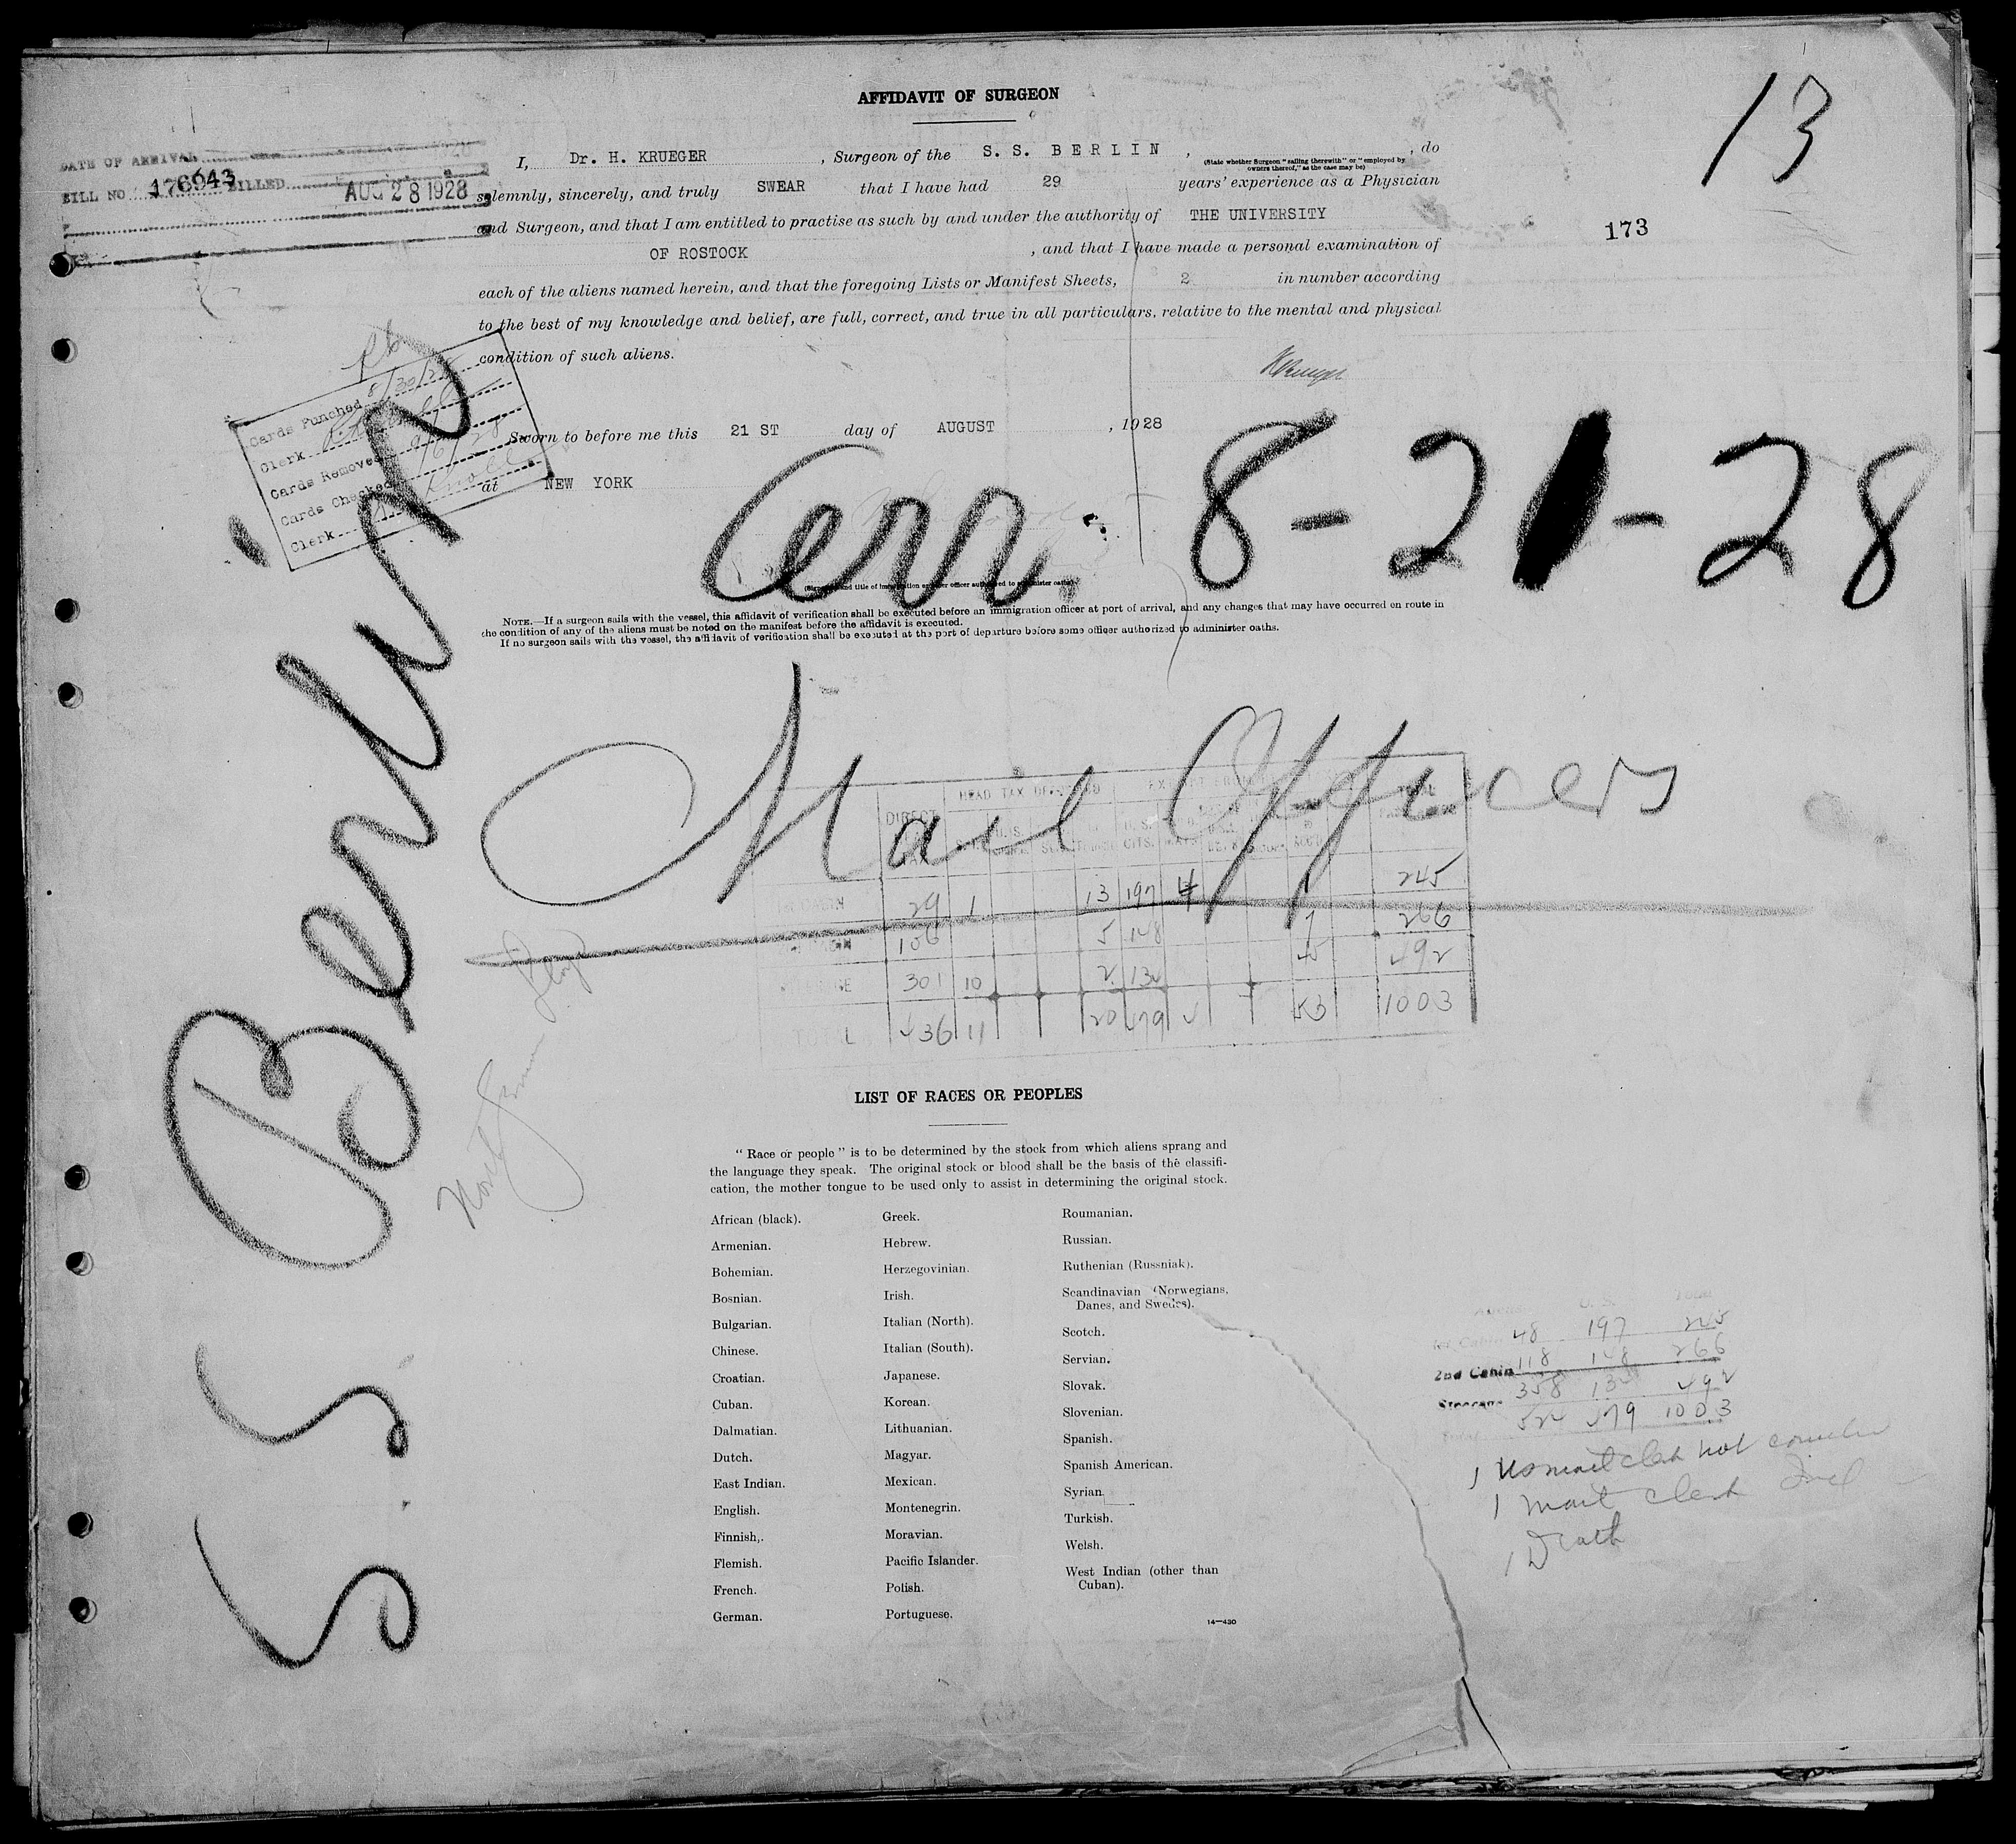 AFFIDAVIT OF SURGEON
13
DATE OF ARRIVAL
BILL NO. 176943 BILLED AUG 28 1928
173
I, Dr. H. KRUEGER , Surgeon of the S. S. BERLIN , , do
(State whether Surgeon "sailing therewith" or "employed by
owners thereof," as the case may be)
solemnly, sincerely, and truly SWEAR that I have had 29 years' experience as a Physician
and Surgeon, and that I am entitled to practise as such by and under the authority of THE UNIVERSITY
OF ROSTOCK , and that I have made a personal examination of
each of the aliens named herein, and that the foregoing Lists or Manifest Sheets, 2 in number according
to the best of my knowledge and belief, are full, correct, and true in all particulars, relative to the mental and physical
condition of such aliens.
Cards Punched 8/30/28
Clerk
Cards Removed
Cards Checked 9/6/28
Clerk
Sworn to before me this 21 ST day of AUGUST , 1928
at NEW YORK
Arr. 8-21-28
NOTE.—If a surgeon sails with the vessel, this affidavit of verification shall be executed before an immigration officer at port of arrival, and any changes that may have occurred en route in
the condition of any of the aliens must be noted on the manifest before the affidavit is executed.
If no surgeon sails with the vessel, the affidavit of verification shall be executed at the port of departure before some officer authorized to administer oaths.
S S Berlin
Mail Officers
North German Lloyd
DIRECT HEAD TAX
U.S. CITS.
29 1 13 197 4 1 245
106 5 148 7 266
301 10 2 134 45 492
TOTAL 436 11 20 479 4 53 1003
LIST OF RACES OR PEOPLES
"Race or people" is to be determined by the stock from which aliens sprang and
the language they speak. The original stock or blood shall be the basis of the classifi-
cation, the mother tongue to be used only to assist in determining the original stock.
African (black).
Armenian.
Bohemian.
Bosnian.
Bulgarian.
Chinese.
Croatian.
Cuban.
Dalmatian.
Dutch.
East Indian.
English.
Finnish.
Flemish.
French.
German.
Greek.
Hebrew.
Herzegovinian.
Irish.
Italian (North).
Italian (South).
Japanese.
Korean.
Lithuanian.
Magyar.
Mexican.
Montenegrin.
Moravian.
Pacific Islander.
Polish.
Portuguese.
Roumanian.
Russian.
Ruthenian (Russniak).
Scandinavian (Norwegians,
Danes, and Swedes).
Scotch.
Servian.
Slovak.
Slovenian.
Spanish.
Spanish American.
Syrian.
Turkish.
Welsh.
West Indian (other than
Cuban).
14—430
Total
1st Cabin 48 197 245
2nd Cabin 118 148 266
Steerage 358 134 492
524 479 1003
1 US mail clerk not
1 mail clerk
1 Death